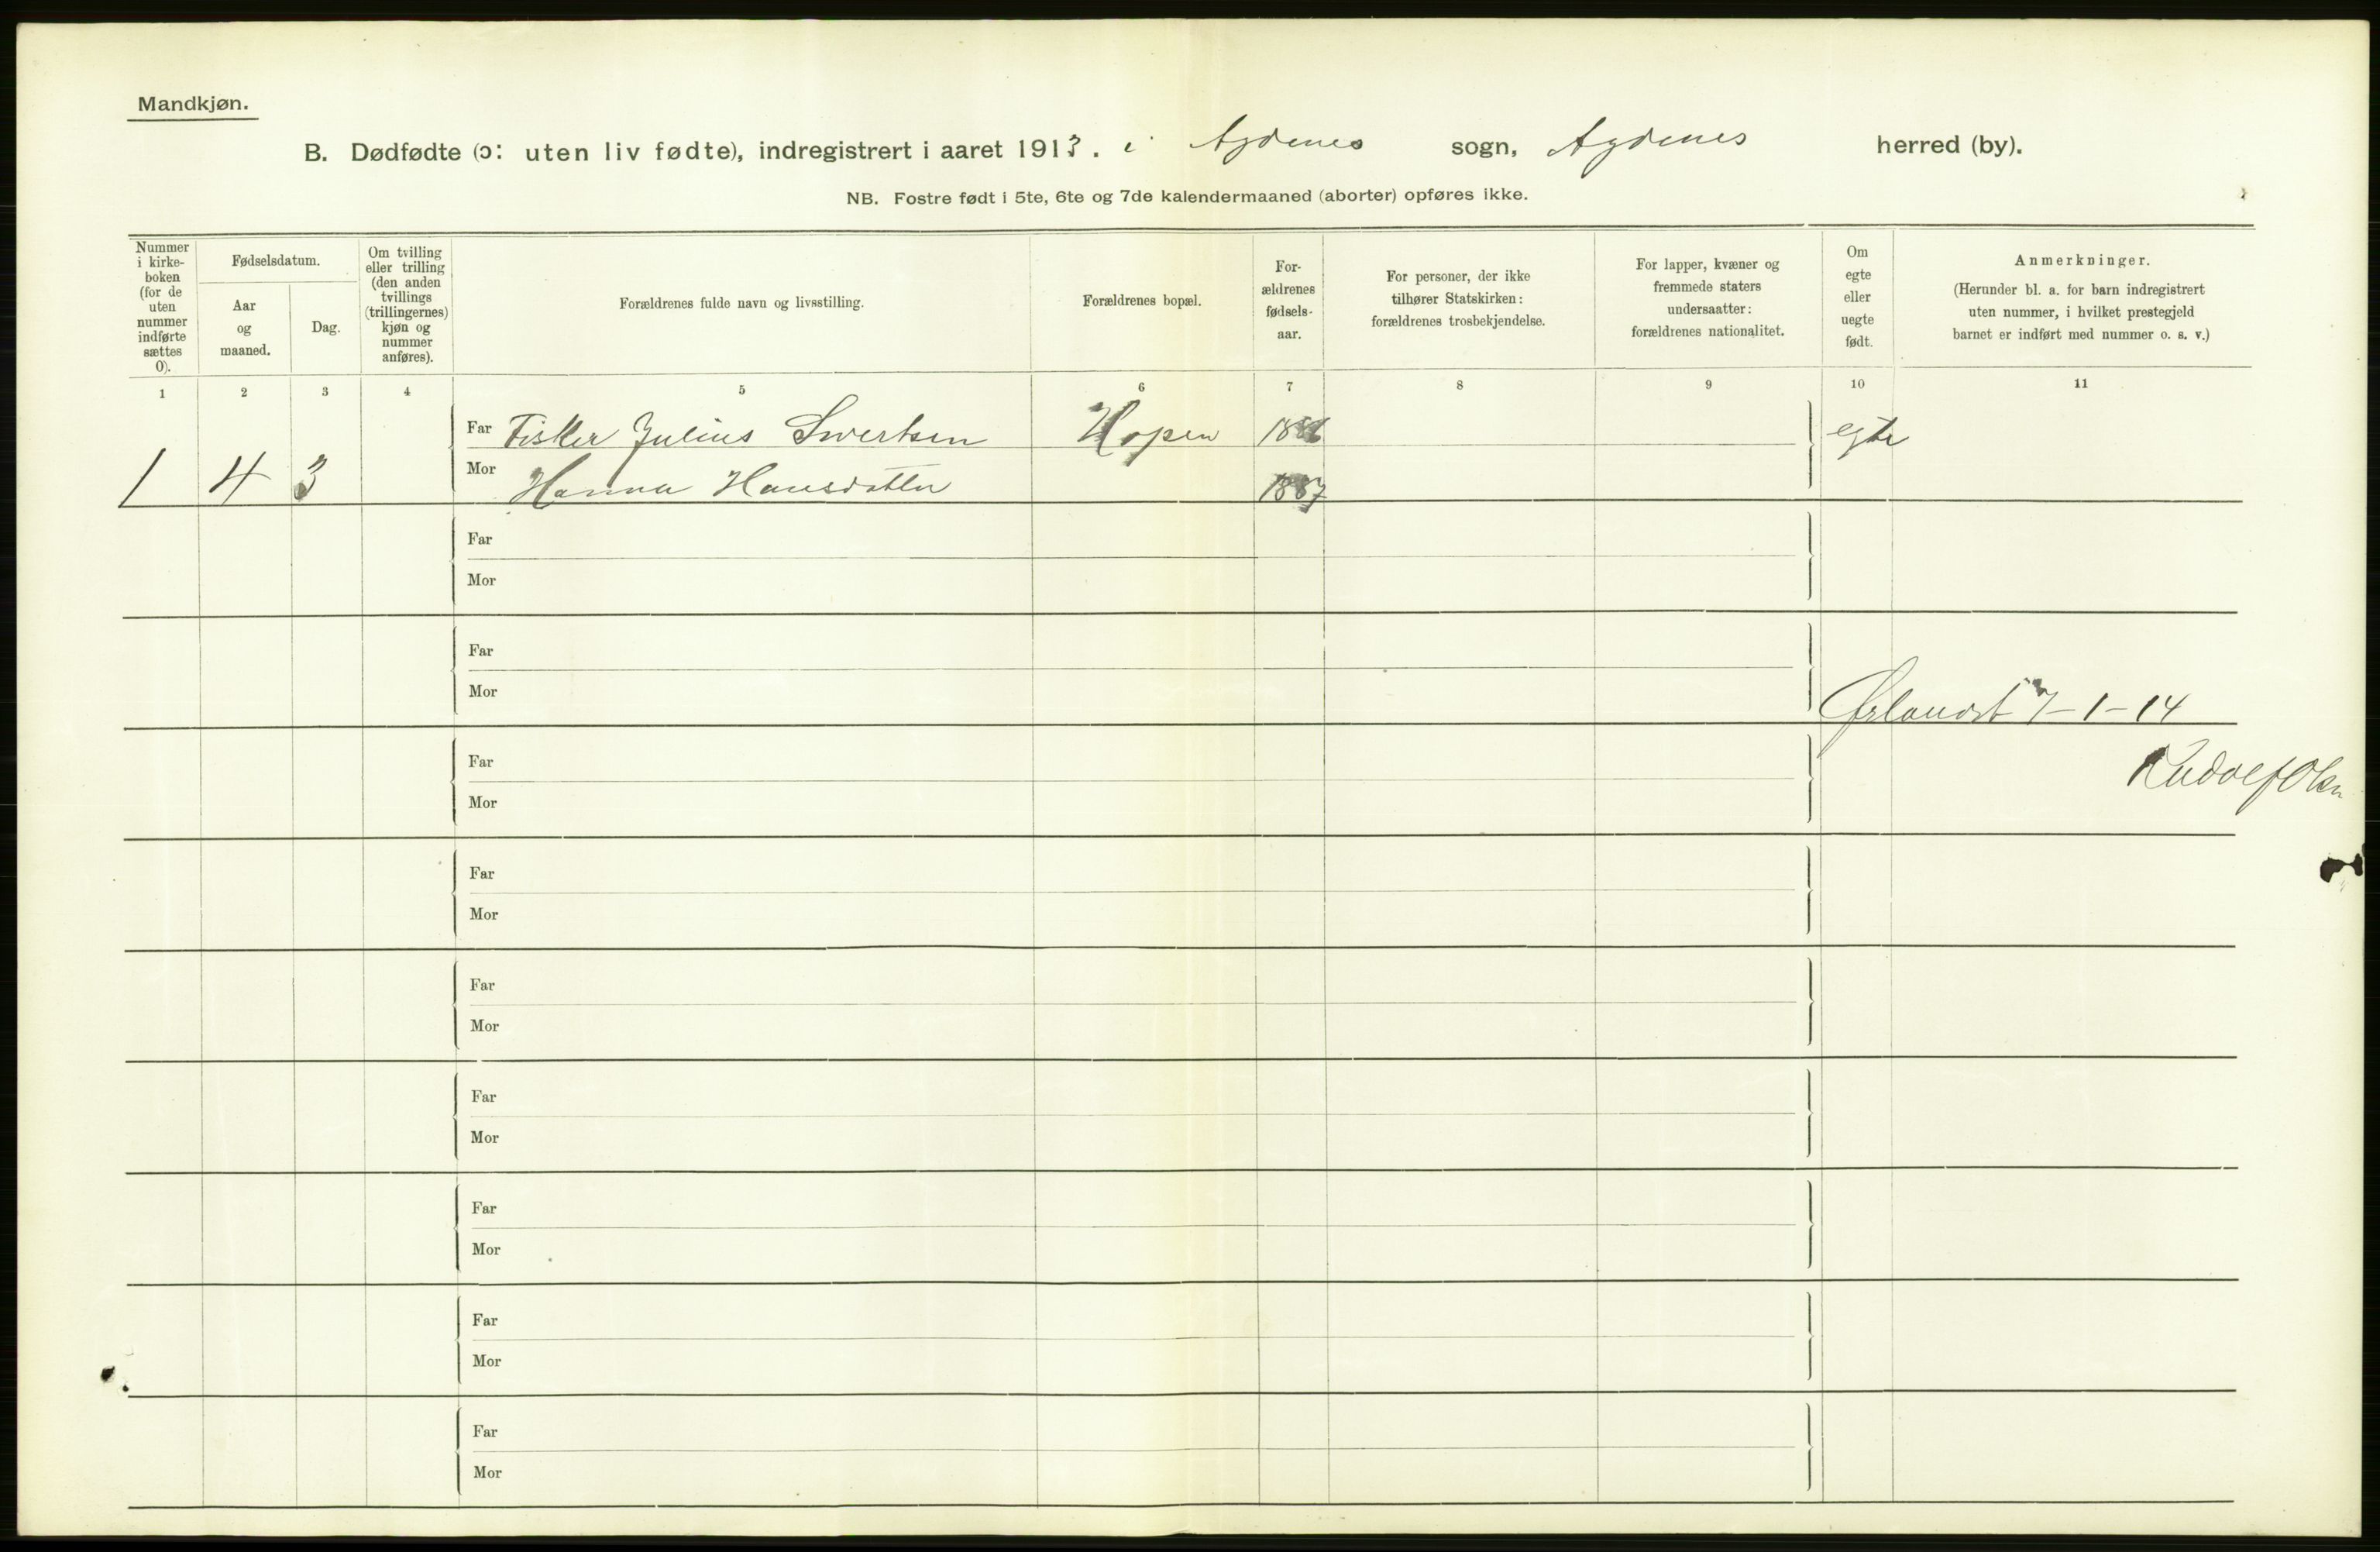 Mandkjøn.
B. Dødfødte (ɔ: uten liv fødte), indregistrert i aaret 1913. i Agdenes sogn, Agdenes herred (by).
NB. Fostre født i 5te, 6te og 7de kalendermaaned (aborter) opføres ikke.
Nummer
i kirke-
boken
(for de
uten
nummer
indførte
sættes
0).
Fødselsdatum.
Aar
og
maaned.
Dag.
Om tvilling
eller trilling
(den anden
tvillings
(trillingernes)
kjøn og
nummer
anføres).
Forældrenes fulde navn og livsstilling.
Forældrenes bopæl.
For-
ældrenes
fødsels-
aar.
For personer, der ikke
tilhører Statskirken:
forældrenes trosbekjendelse.
For lapper, kvæner og
fremmede staters
undersaatter:
forældrenes nationalitet.
Om
egte
eller
uegte
født.
Anmerkninger.
(Herunder bl. a. for barn indregistrert
uten nummer, i hvilket prestegjeld
barnet er indført med nummer o. s. v.)
1 2 3 4 5 6 7 8 9 10 11
Far Fisker Julius Sivertsen Hopen 1886 egte
1 4 3 Mor Hanna Hansdatter 1887
Far
Mor
Far
Mor
Ørlandet 7-1-14
Far
Rudolf Olsen
Mor
Far
Mor
Far
Mor
Far
Mor
Far
Mor
Far
Mor
Far
Mor